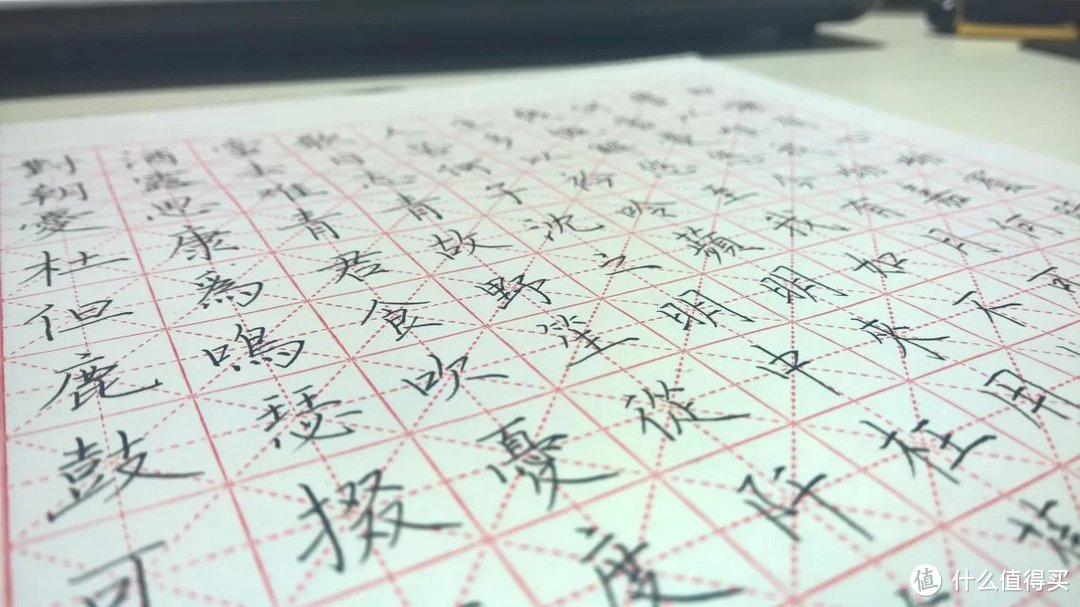 對酒當歌人生幾何
朝露去日苦多慨當以
憂思難忘何以解憂
杜康青青子衿悠悠我心
但為君故沈吟至今
鹿鳴食野之蘋我有嘉賓
鼓瑟吹笙明明如月何時
可掇憂從中來不可
度阡枉用
值 什么值得买